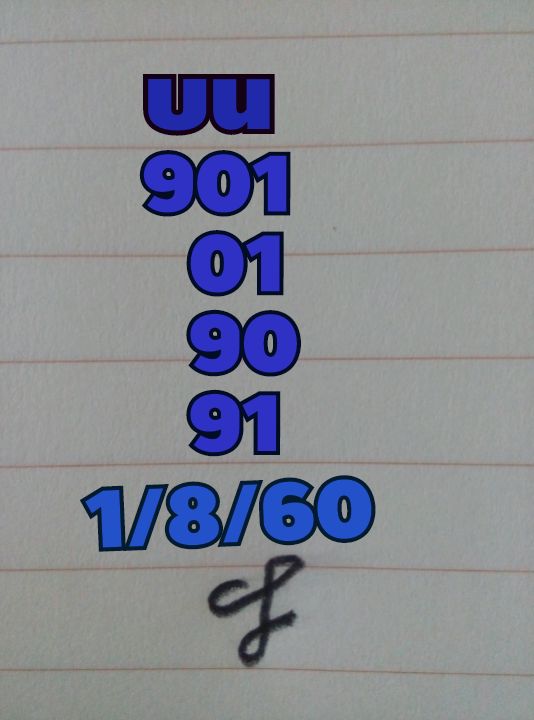 บน
901
01
90
91
1/8/60